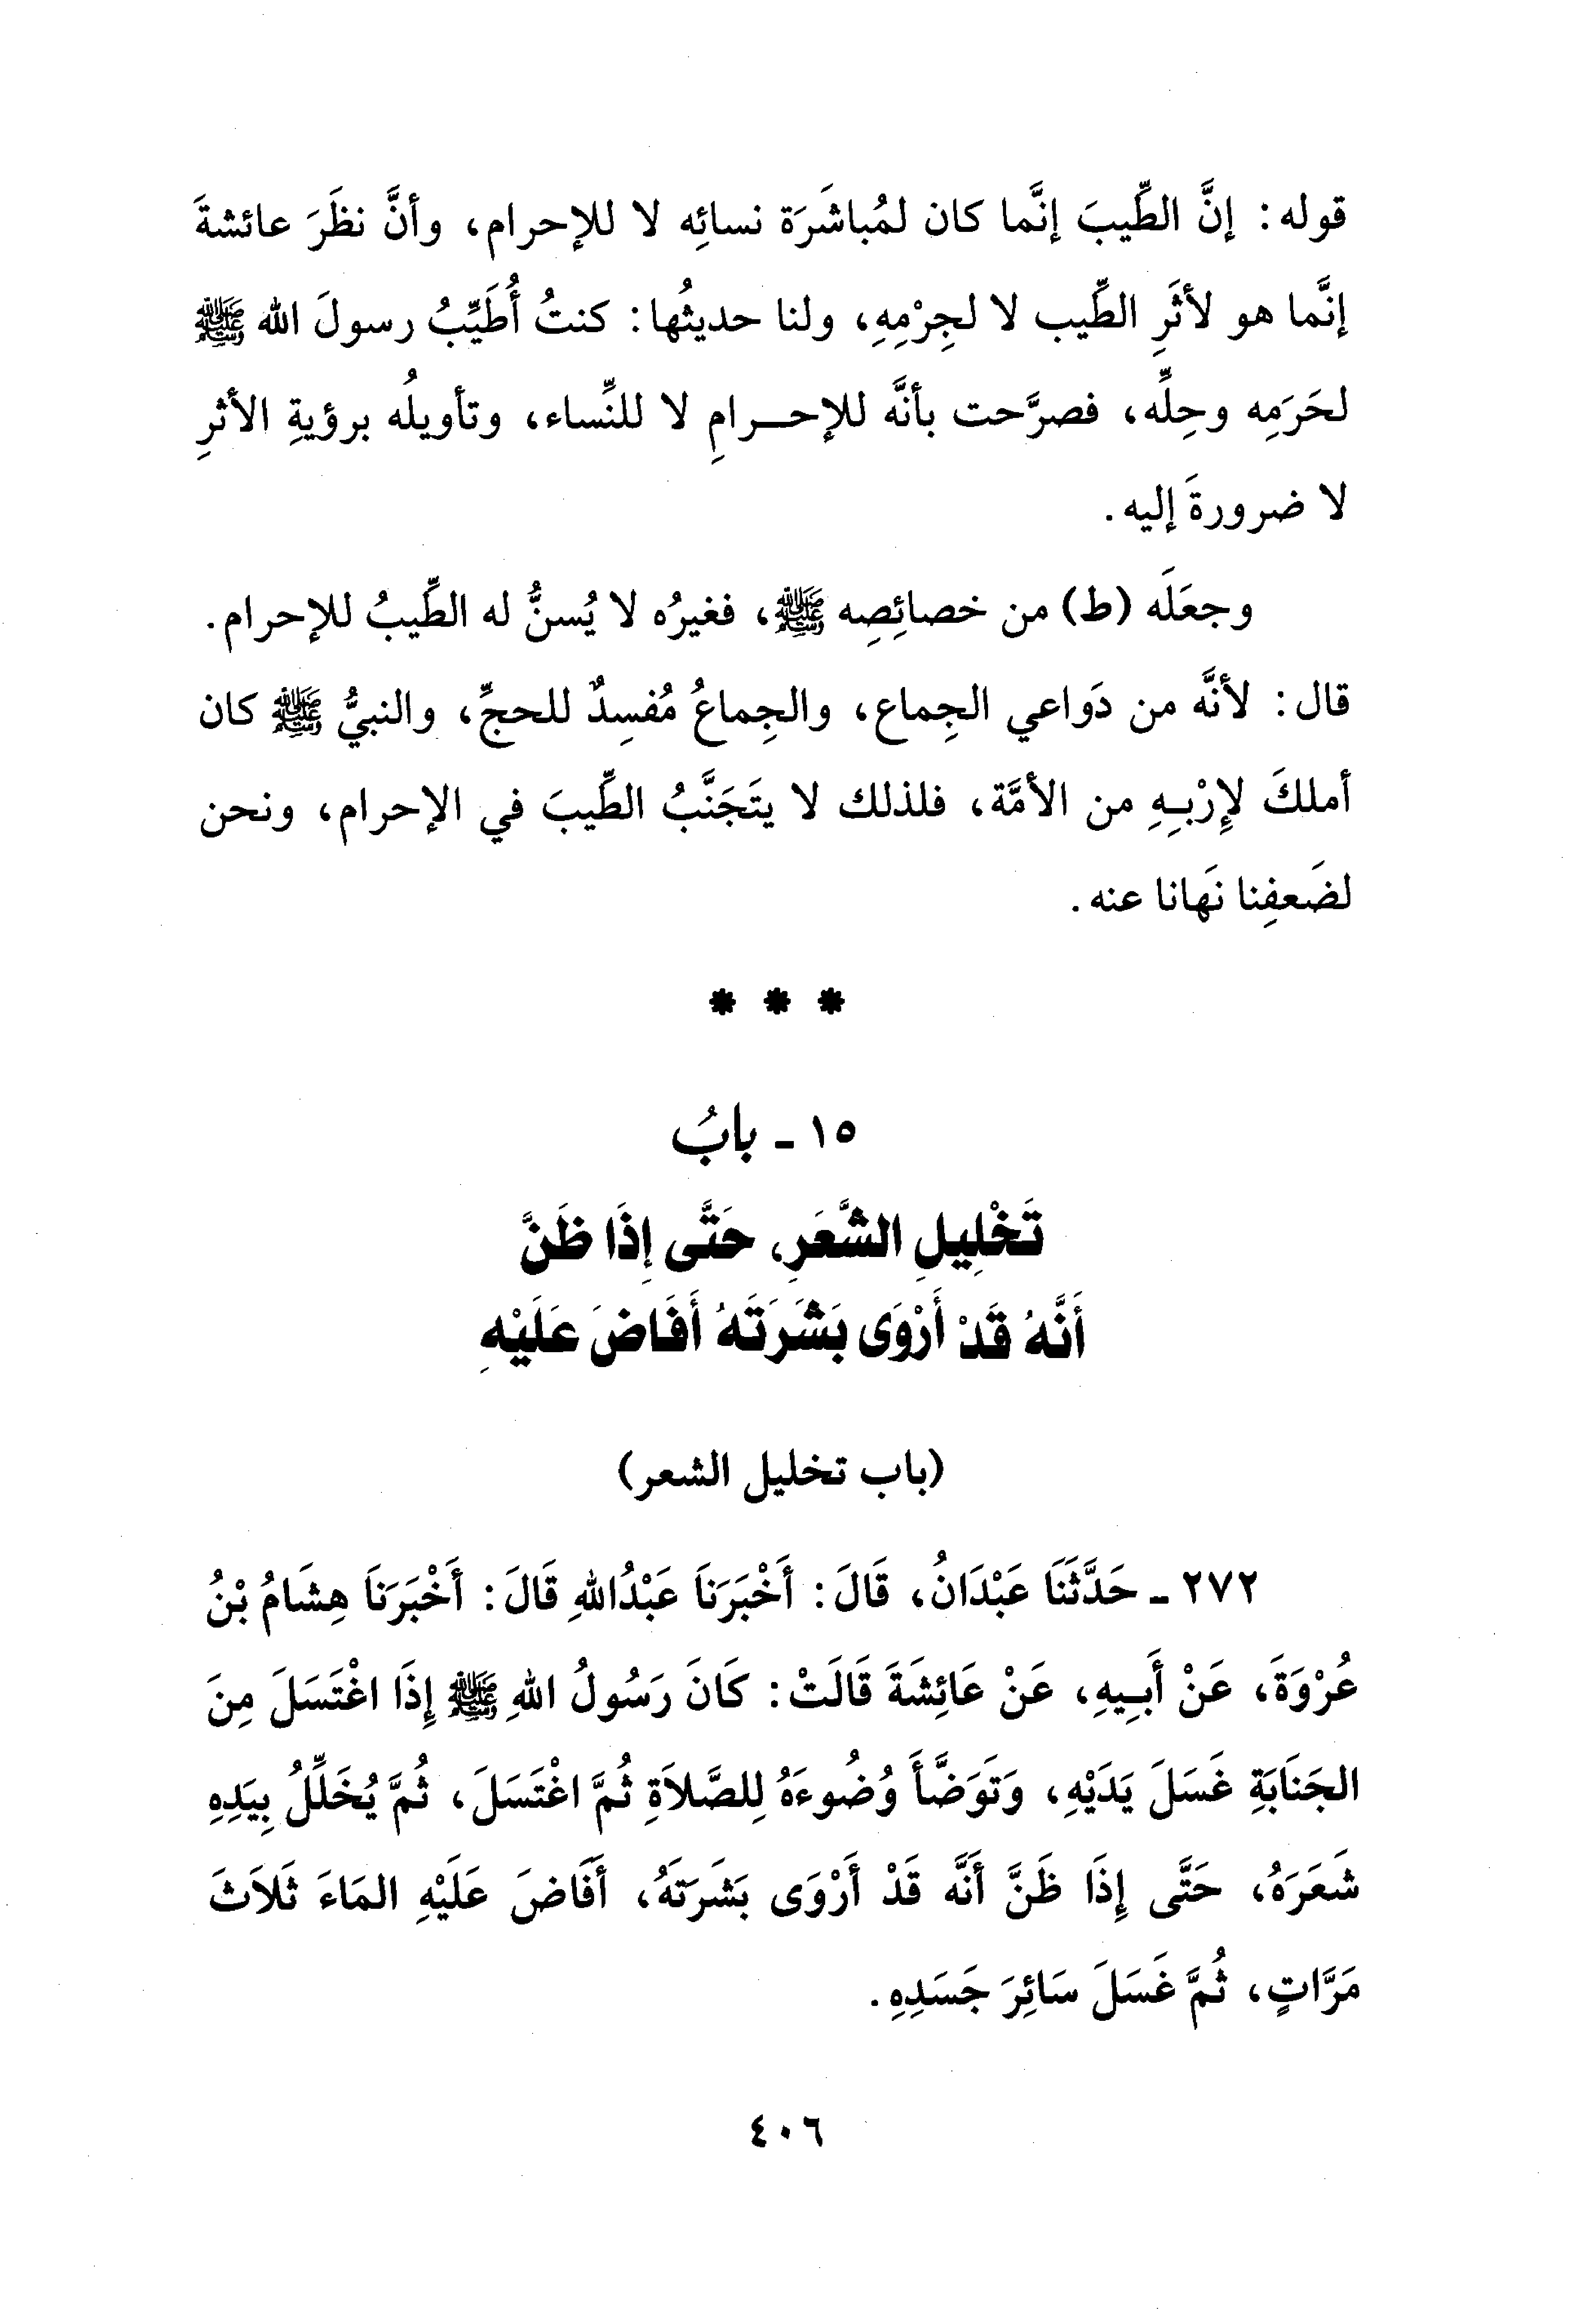 قوله: إنَّ الطِّيبَ إنَّما كان لمُباشَرَة نسائِه لا للإحرام، وأنَّ نظَرَ عائشةَ
إنَّما هو لأثَرِ الطِّيب لا لجِرْمِهِ، ولنا حديثُها: كنتُ أُطَيِّبُ رسولَ الله ﷺ
لحَرَمِه وحِلِّه، فصرَّحت بأنَّه للإحـــرامِ لا للنِّساء، وتأويلُه برؤيةِ الأثرِ
لا ضرورةَ إليه.
وجعَلَه (ط) من خصائِصِه ﷺ، فغيرُه لا يُسنُّ له الطِّيبُ للإحرام.
قال: لأنَّه من دَواعي الجِماع، والجِماعُ مُفسِدٌ للحجِّ، والنبيُّ ﷺ كان
أملكَ لإِرْبِـهِ من الأمَّة، فلذلك لا يتَجَنَّبُ الطِّيبَ في الإحرام، ونحن
لضَعفِنا نَهانا عنه.
* * *
١٥ - بابُ
تَخْلِيلِ الشَّعَرِ، حَتَّى إِذَا ظَنَّ
أَنَّهُ قَدْ أَرْوَى بَشَرَتَهُ أَفَاضَ عَلَيْهِ
(باب تخليل الشعر)
٢٧٢ - حَدَّثَنَا عَبْدَانُ، قَالَ: أَخْبَرَنَا عَبْدُاللهِ قَالَ: أَخْبَرَنَا هِشَامُ بْنُ
عُرْوَةَ، عَنْ أَبـِيهِ، عَنْ عَائِشَةَ قَالَتْ: كَانَ رَسُولُ اللهِ ﷺ إِذَا اغْتَسَلَ مِنَ
الجَنَابَةِ غَسَلَ يَدَيْهِ، وَتَوَضَّأَ وُضُوءَهُ لِلصَّلاَةِ ثُمَّ اغْتَسَلَ، ثُمَّ يُخَلِّلُ بِيَدِهِ
شَعَرَهُ، حَتَّى إِذَا ظَنَّ أَنَّه قَدْ أَرْوَى بَشَرَتَهُ، أَفَاضَ عَلَيْهِ المَاءَ ثَلاَثَ
مَرَّاتٍ، ثُمَّ غَسَلَ سَائِرَ جَسَدِهِ.
٤٠٦